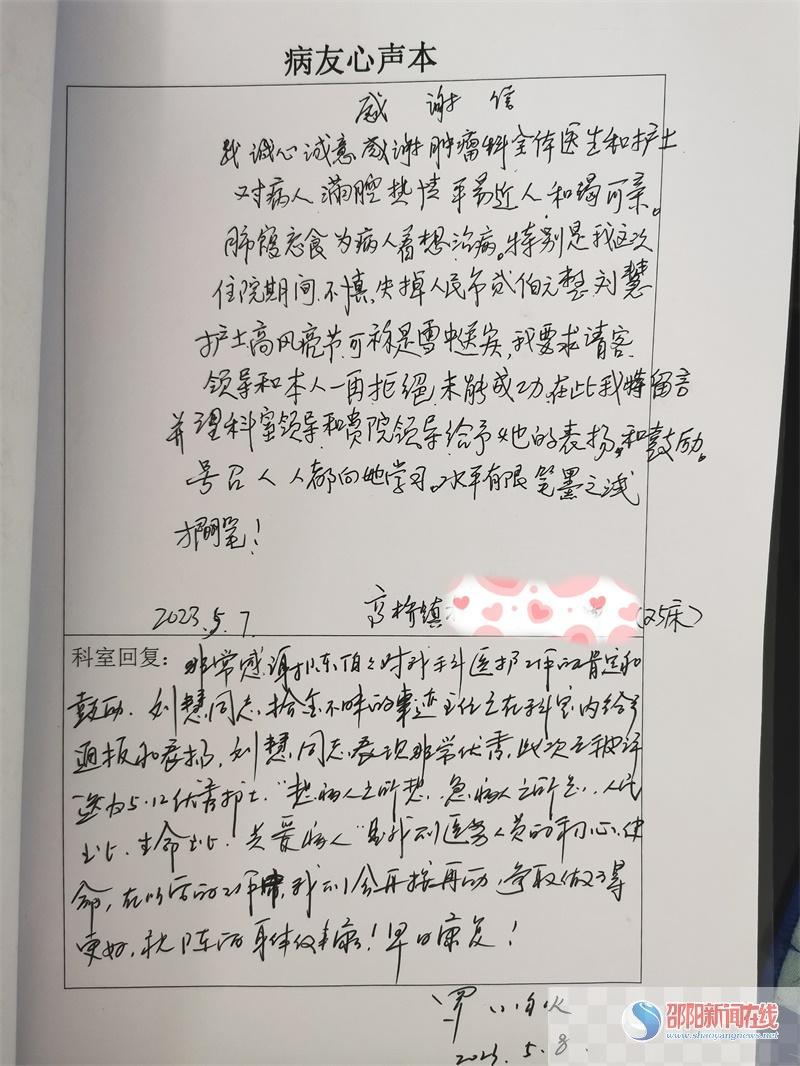 病友心声本
感谢信
我诚心诚意感谢肿瘤科全体医生和护士
对病人满腔热情平易近人和蔼可亲。
废寝忘食为病人着想治病。特别是我这次
住院期间不慎失掉人民币贰佰元整刘慧
护士高风亮节可称是雪中送炭,我要求请客
领导和本人一再拒绝未能成功.在此我特留言
并理科室领导和贵院领导给予她的表扬和鼓励。
号召人人都向她学习。水平有限笔墨之浅
才搁笔!
2023.5.7 高桥镇 (25床)
科室回复:非常感谢陈伯伯对我科医护工作的肯定和
鼓励.刘慧同志拾金不昧的事迹主任已在科室内给予
通报和表扬,刘慧同志表现非常优秀,此次已被评
选为5.12优秀护士."想病人之所想.急病人之所急.人民
至上.生命至上.关爱病人"是我们医务人员的初心使
命,在以后的工作中,我们会再接再励,争取做得
更好,祝陈 身体健康!早日康复!
2023.5.8
邵阳新闻在线
www.shaoyangnews.net